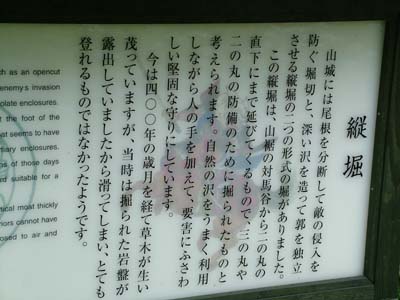 縦堀
山城には尾根を分断して敵の侵入を
防ぐ堀切と、深い沢を造って郭を独立
させる縦堀の二つの形式の堀がありました。
この縦堀は、山裾の対馬谷から二の丸の
直下にまで延びてくるもので、三の丸や
二の丸の防備のために掘られたものと
考えられます。自然の沢をうまく利用
しながら人の手を加えて、要害にふさわ
しい堅固な守りにしています。
今は四〇〇年の歳月を経て草木が生い
茂っていますが、当時は掘られた岩盤が
露出していましたから滑ってしまい、とても
登れるものではなかったようです。
ch as an opencut
enemy's invasion
plate enclosures.
t the foot of the
hat seems to have
rtiary enclosures.
ps of those days
ed suitable for a
tical moat thickly
riors cannot have
posed to air and